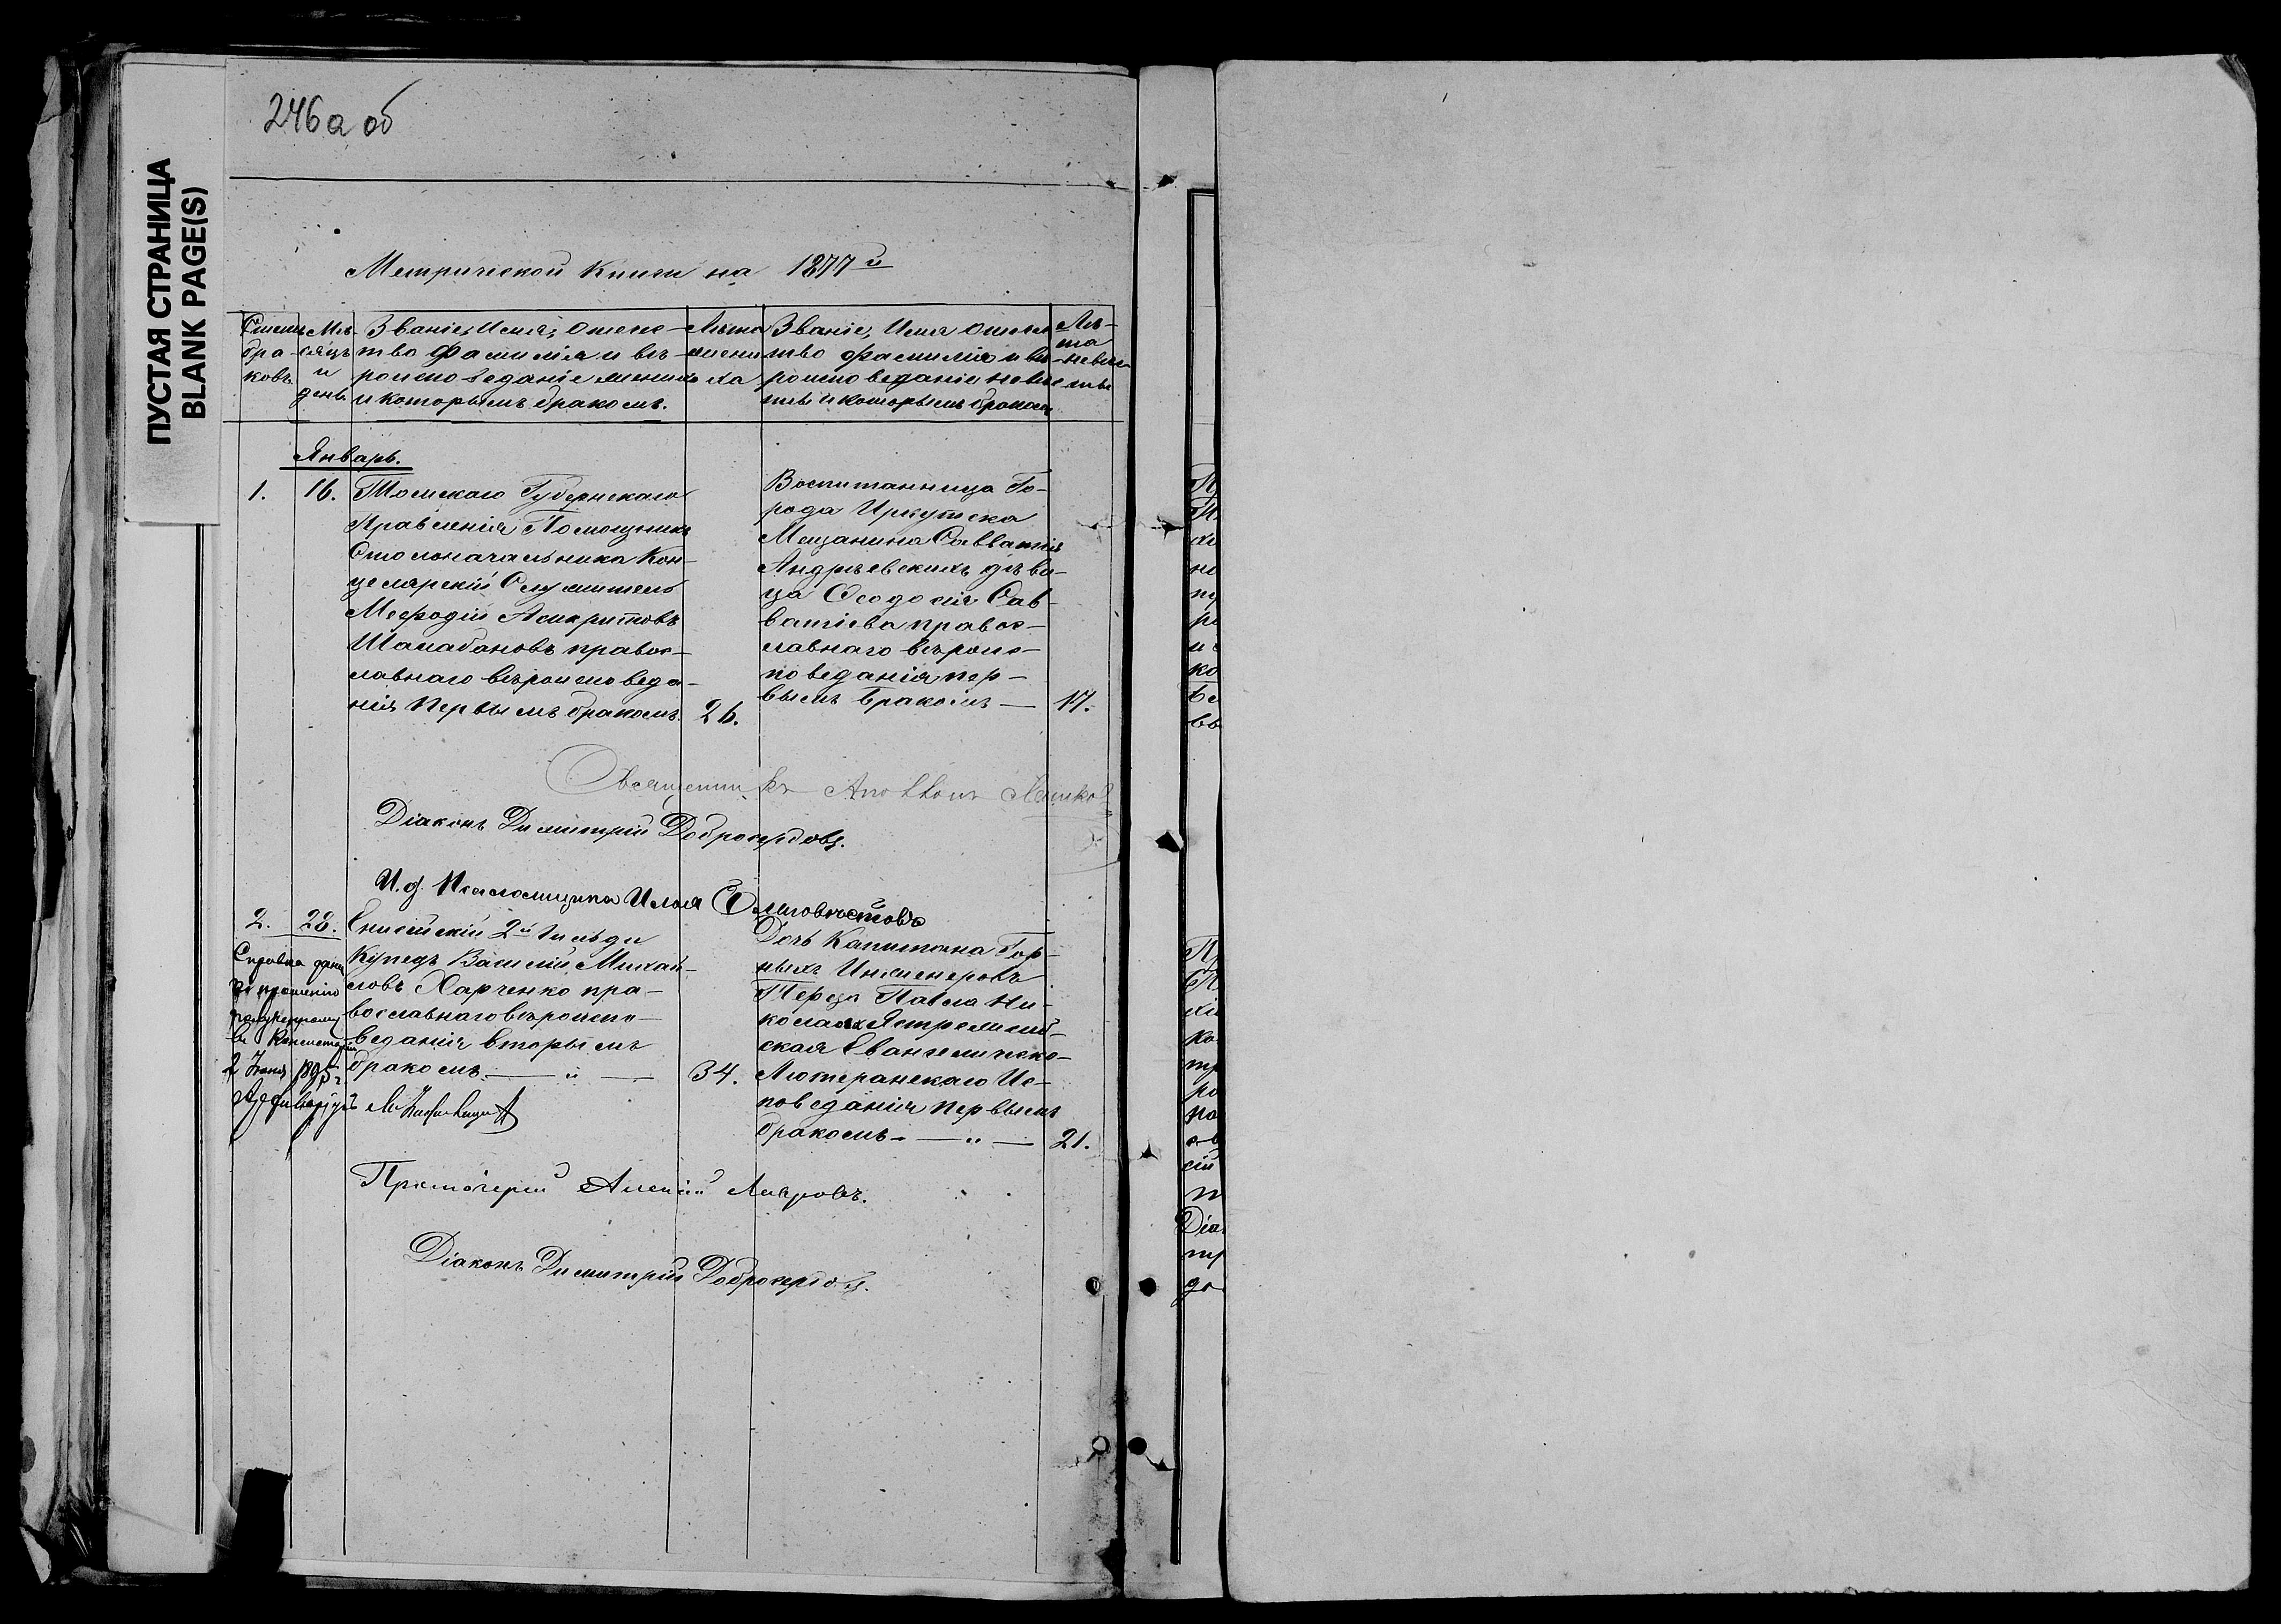 246а об
ПУСТАЯ СТРАНИЦА
BLANK PAGE(S)
Метрической Книги на 1877й
Счетъ бра-ковъ
Мѣ-сяцъ и день
Званіе, Имя, отече-
ство фамилія и вѣ-
роисповеданіе жениха
и которымъ бракомъ.
Лѣта жениха
Званіе, Имя отече
ство фамилія и вѣ-
роисповеданіе невѣс
ты и которымъ бракомъ
Лѣ-та невѣсты
Январь.
1. 16.
Томскаго Губернскаго
Правленія Помощникъ
Столоначальника Кан-
целярскій Служитель
Мефодій Асикритовъ
Шалабановъ правос-
лавнаго вѣроисповеда-
нія Первымъ бракомъ. 26.
Воспитанница Го-
рода Иркутска
Мещанина Савватія
Андрѣевскихъ дѣви-
ца Феодосія Сав-
ватіева правос-
лавнаго вѣроис-
поведанія пер-
вымъ бракомъ — 17.
Священникъ
Діаконъ Димитрій Добросердовъ.
И. д. Псаломщика Илья
2. 28.
Енисейскій 2й Гильди
Купецъ Василій Михай-
ловъ Харченко пра-
вославнаго вѣроиспо-
веданія вторымъ
бракомъ. — " — 34.
Дочь Капитана Гор-
ныхъ Инженеровъ
Павла Ни-
колая
ская Евангелическо-
Лютеранскаго Ис-
поведанія первымъ
бракомъ. — " — 21.
Справка дана
по прошенію
въ Консисторіи
2 1895 г.
Протоіерей Алексій Лавровъ.
Діаконъ Димитрій Добросердовъ.